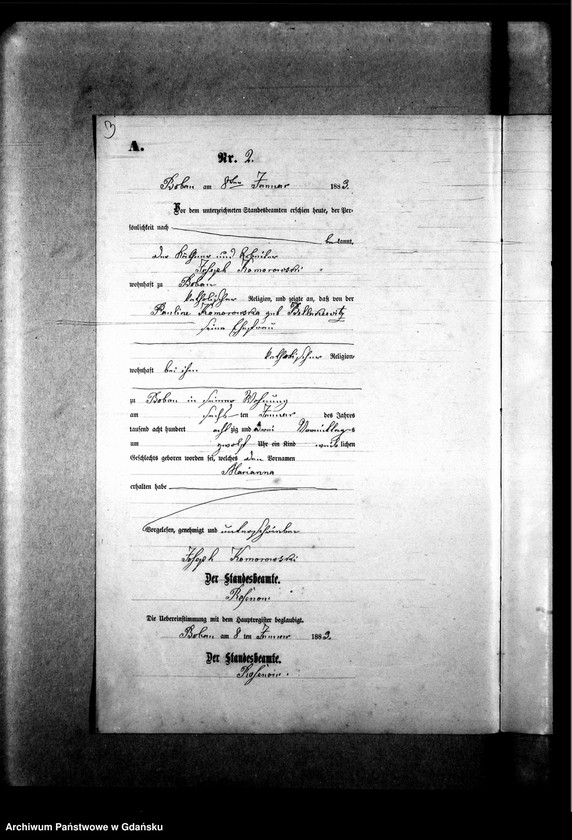 3
A.
Nr. 2.
Boban am 8ten Januar 1883.
Vor dem unterzeichneten Standesbeamten erschien heute, der Per-
sönlichkeit nach
bekannt,
der und Arbeiter
Joseph Komorowski
wohnhaft zu Boban
katholischer Religion, und zeigte an, daß von der
Pauline Komorowska geb
seine Ehefrau
katholischer Religion
wohnhaft bei ihm
zu Boban in seiner Wohnung
am sechs ten Januar des Jahres
tausend acht hundert achtzig und drei Vormittags
um zwölf Uhr ein Kind weiblichen
Geschlechts geboren worden sei, welches den Vornamen
Marianna
erhalten habe
Vorgelesen, genehmigt und unterschrieben
Joseph Komorowski
Der Standesbeamte.
Rosenow
Die Uebereinstimmung mit dem Hauptregister beglaubigt.
Boban am 8 ten Januar 1883.
Der Standesbeamte.
Rosenow.
Archiwum Państwowe w Gdańsku